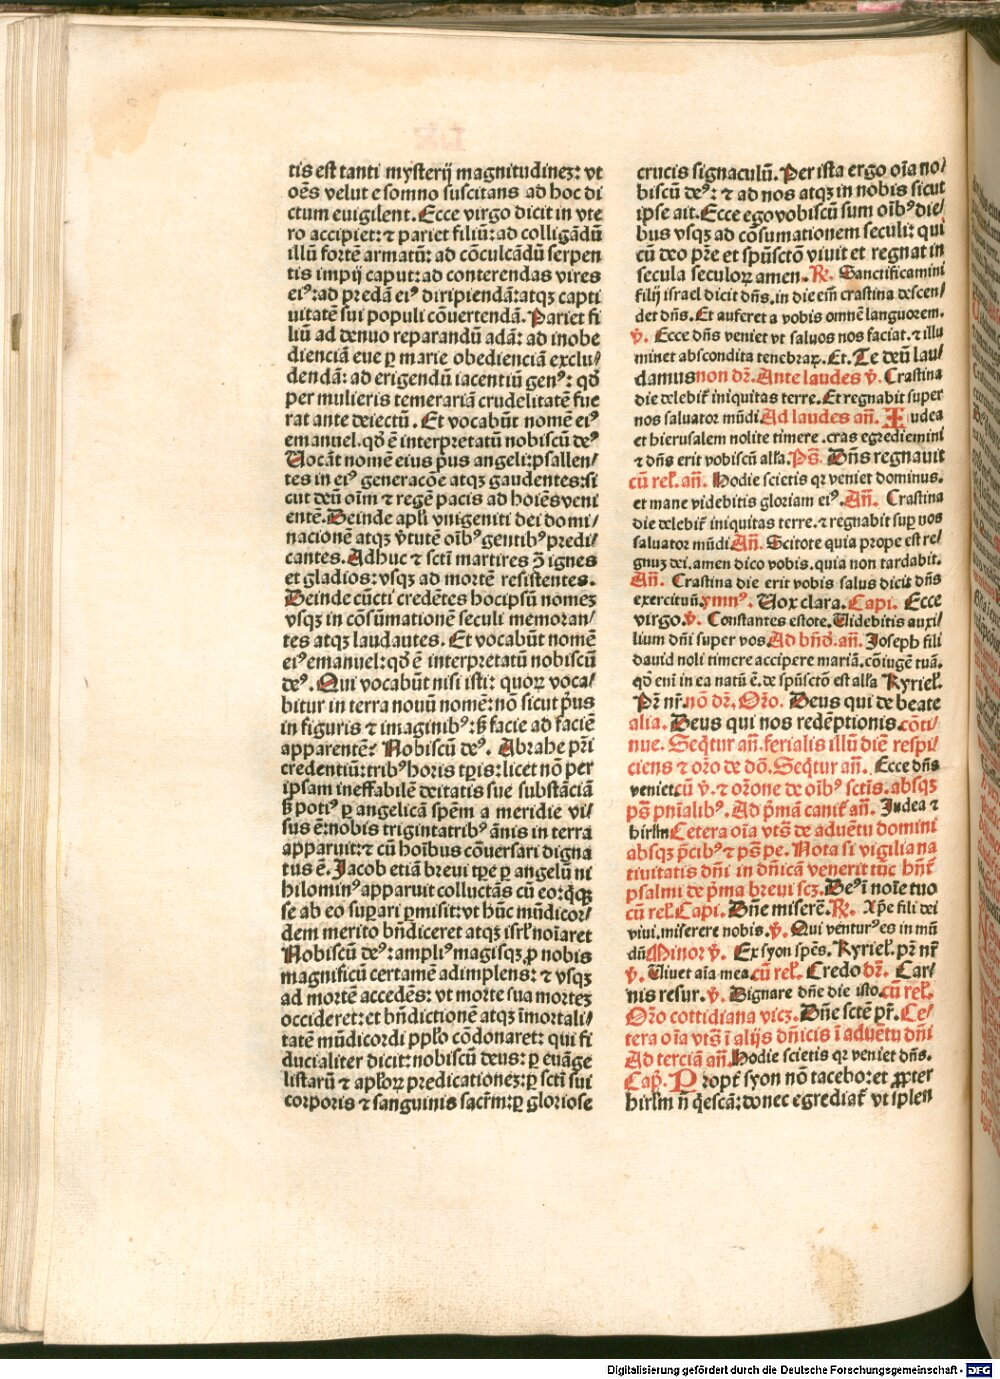 tis est tanti mysterij magnitudinez: vt
oēs velut e somno suscitans ad hoc di
ctum euigilent. Ecce virgo dicit in vte
ro accipiet: ⁊ pariet filiū: ad colligādū
illū fortē armatū: ad cōculcādū serpen
tis impij caput: ad conterendas vires
eiꝰ: ad predā eiꝰ diripiendā: atqꝫ capti
uitatē sui populi cōuertendā. Pariet fi
liū ad denuo reparandū adā: ad inobe
dienciā eue ꝑ marie obedienciā exclu/
dendā: ad erigendū iacentiū genꝰ: qđ
per mulieris temerariā crudelitatē fue
rat ante deiectū. Et vocabūt nomē eiꝰ
emanuel. qđ ē interpretatū nobiscū deꝰ
Uocāt nomē eius pꝰus angeli: psallen/
tes in eiꝰ generacōe atqꝫ gaudentes: si
cut deū oīm ⁊ regē pacis ad hoīes veni
entē. Deinde apłi vnigeniti dei domi/
nacionē atqꝫ v̄tutē oībꝰ gentibꝰ predi/
cantes. Adhuc ⁊ scti martires ꝯ ignes
et gladios: vsqꝫ ad mortē resistentes.
Deinde cūcti credētes hoc ipsū nomeꝫ
vsqꝫ in cōsūmationē seculi memoran/
tes atqꝫ laudantes. Et vocabūt nomē
eiꝰ emanuel: qđ ē interpretatū nobiscū
deꝰ. Qui vocabūt nisi isti: quoꝝ voca/
bitur in terra nouū nomē: nō sicut pꝰus
in figuris ⁊ imaginibꝰ: sꝫ facie ad faciē
apparentē? Nobiscū deꝰ. Abrahe pr̄i
credentiū: tribꝰ horis tꝑis: licet nō per
ipsam ineffabilē deitatis sue substāciā
sꝫ potiꝰ ꝑ angelicā spēm a meridie vi/
sus ē: nobis trigintatribꝰ ānis in terra
apparuit: ⁊ cū hoībus cōuersari digna
tus ē. Jacob etiā breui tꝑe ꝑ angelū ni
hilominꝰ apparuit colluctās cū eo: q̄qꝫ
se ab eo suꝑari ꝑmisit: vt hūc mūdicor/
dem merito bn̄diceret atqꝫ isrł noīaret
Nobiscū deꝰ: ampliꝰ magisqꝫ ꝓ nobis
magnificū certamē adimplens: ⁊ vsqꝫ
ad mortē accedēs: vt morte sua morteꝫ
occideret: et bn̄dictionē atqꝫ īmortali/
tatē mūdicordi ppłło cōdonaret: qui fi
ducialiter dicit: nobiscū deus: ꝑ euāge
listarū ⁊ apłoꝝ predicationeꝫ: ꝑ scti sui
corporis ⁊ sanguinis sacr̄m: ꝑ gloriose
crucis signaculū. Per ista ergo oīa no/
biscū deꝰ: ⁊ ad nos atqꝫ in nobis sicut
ipse ait. Ecce ego vobiscū sum oībꝰ die/
bus vsqꝫ ad cōsumationem seculi: qui
cū deo pr̄e et spūscto viuit et regnat in
secula seculoꝝ amen. ℟. Sanctificamini
filij israel dicit dn̄s. in die em̄ crastina descen/
det dn̄s. Et auferet a vobis omnē languorem.
℣. Ecce dn̄s veniet vt saluos nos faciat. ⁊ illu
minet abscondita tenebraꝝ. Et. Te deū lau/
damus non dr̄. Ante laudes ℣. Crastina
die delebit̄ iniquitas terre. Et regnabit super
nos saluator mūdi Ad laudes añ. Iudea
et hierusalem nolite timere. cras egrediemini
⁊ dn̄s erit vobiscū alła. Ps̄. Dn̄s regnauit
cū reł. añ. Hodie scietis qꝛ veniet dominus.
et mane videbitis gloriam eiꝰ. Añ. Crastina
die delebit̄ iniquitas terre. ⁊ regnabit suꝑ nos
saluator mūdi Añ. Scitote quia prope est re/
gnuꝫ dei. amen dico vobis. quia non tardabit.
Añ. Crastina die erit vobis salus dicit dn̄s
exercituū. ymnꝰ. Uox clara. Capi. Ecce
virgo. ℣. Constantes estote. Uidebitis auxi/
lium dn̄i super vos. Ad bn̄đ. añ. Joseph fili
dauid noli timere accipere mariā. cōiugē tuā.
qđ eni in ea natū ē. de spūscto est alła Kyrieł.
Pr̄ nr̄. nō dr̄. Or̄o. Deus qui de beate
alia. Deus qui nos redēptionis. cōti/
nue. Seq̄tur añ. ferialis illū diē respi/
ciens ⁊ or̄o de dō. Seq̄tur añ. Ecce dn̄s
veniet. cū ℣. ⁊ or̄one de oībꝰ sctīs. absqꝫ
ps̄ pn̄ialibꝰ. Ad p̄mā canit̄ añ. Judea ⁊
hirłm Cetera oīa vts̄ de aduētu domini
absqꝫ p̄cibꝰ ⁊ ps̄ pe. Nota si vigilia na
tiuitatis dn̄i in dn̄icā venerit tūc hn̄t̄
psalmi de p̄ma breui scꝫ. Deꝰ ī noīe tuo
cū reł. Capi. Dn̄e miserē. ℟. Xp̄e fili dei
viui. miserere nobis. ℣. Qui venturꝰ es in mū
dū Minor ℣. Ex syon spēs. Kyrieł. pr̄ nr̄
℣. Uiuet aīa mea. cū reł. Credo dr̄. Car/
nis resur. ℣. Dignare dn̄e die isto. cū reł.
Or̄o cottidiana vicꝫ. Dn̄e sctē pr̄. Ce/
tera oīa vts̄ ī alijs dn̄icis ī aduētu dn̄i
Ad terciā añ. Hodie scietis qꝛ veniet dn̄s.
Cap̄. Propt̄ syon nō tacebo: et ꝓpter
hirłm n̄ q̄escā: donec egrediat̄ vt splen
Digitalisierung gefördert durch die Deutsche Forschungsgemeinschaft - DFG